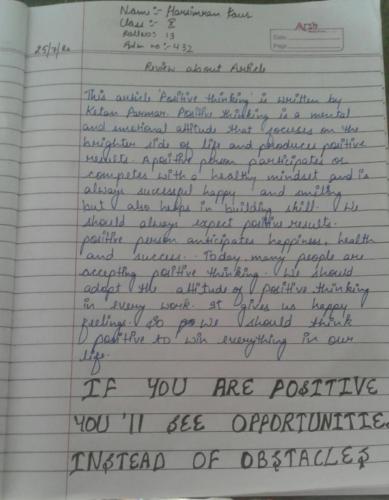 Name:- Harsimran Kaur
Class:- E
Rollno:- 13
Adm no:- 432
Arsh
Date
Page
25/7/20
Review about Article
This article 'Positive thinking' is written by
Ketan Parmar. Positive thinking is a mental
and emotional attitude that focuses on the
brighter side of life and produces positive
results. A positive person participates or
competes with a healthy mindset and is
always successful happy and smiling
but also helps in building skill. We
should always expect positive results.
positive person anticipates happiness, health
and success. Today many people are
accepting positive thinking. We should
adopt the attitude of positive thinking
in every work. It gives us happy
feelings. So we should think
positive to win everything in our
life.
IF YOU ARE POSITIVE
YOU'll SEE OPPORTUNITIES
INSTEAD OF OBSTACLES